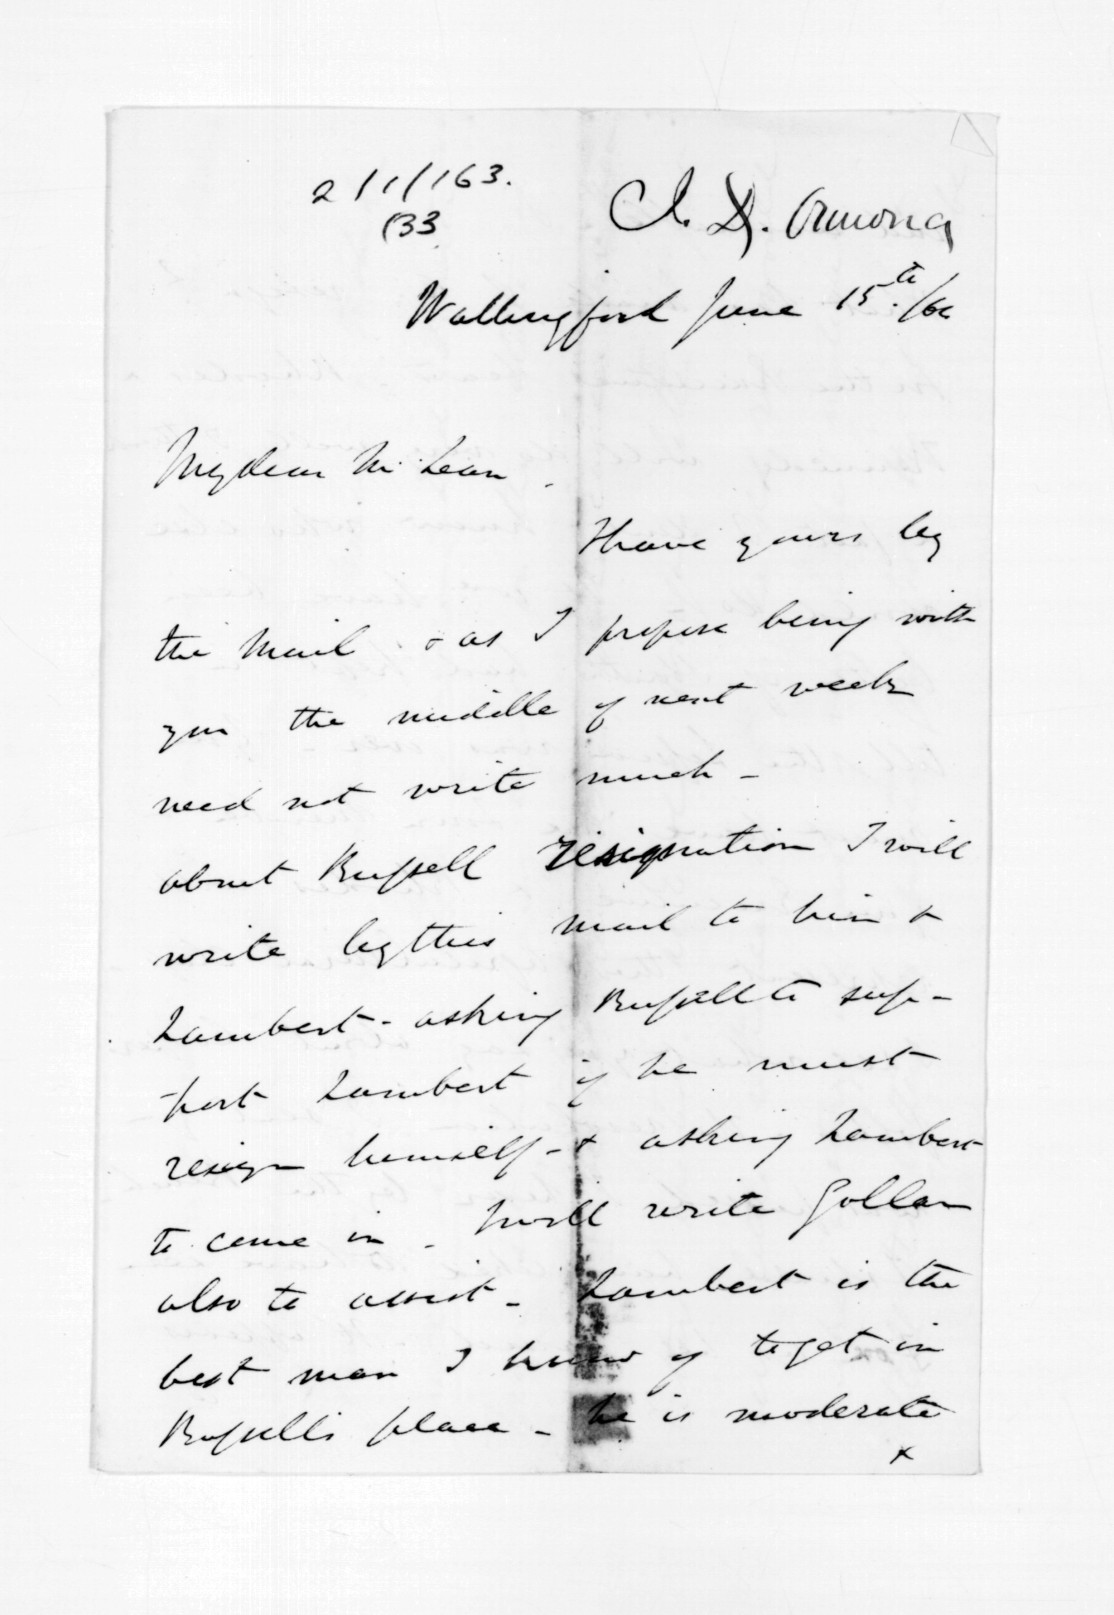 2/1/163.
(33
J. D. Ormond
Wallingford June 15th./66
My dear McLean.
I have yours by
the Mail. & as I propose being with
you the middle of next week
need not write much -
about Russell resignation I will
write by this mail to him &
Lambert - asking Russell to sup-
-port Lambert if he must
resign himself - & asking Lambert
to come in - I will write Gollan
also to assist - Lambert is the
best man I know of to get in
Russells place - he is moderate
x